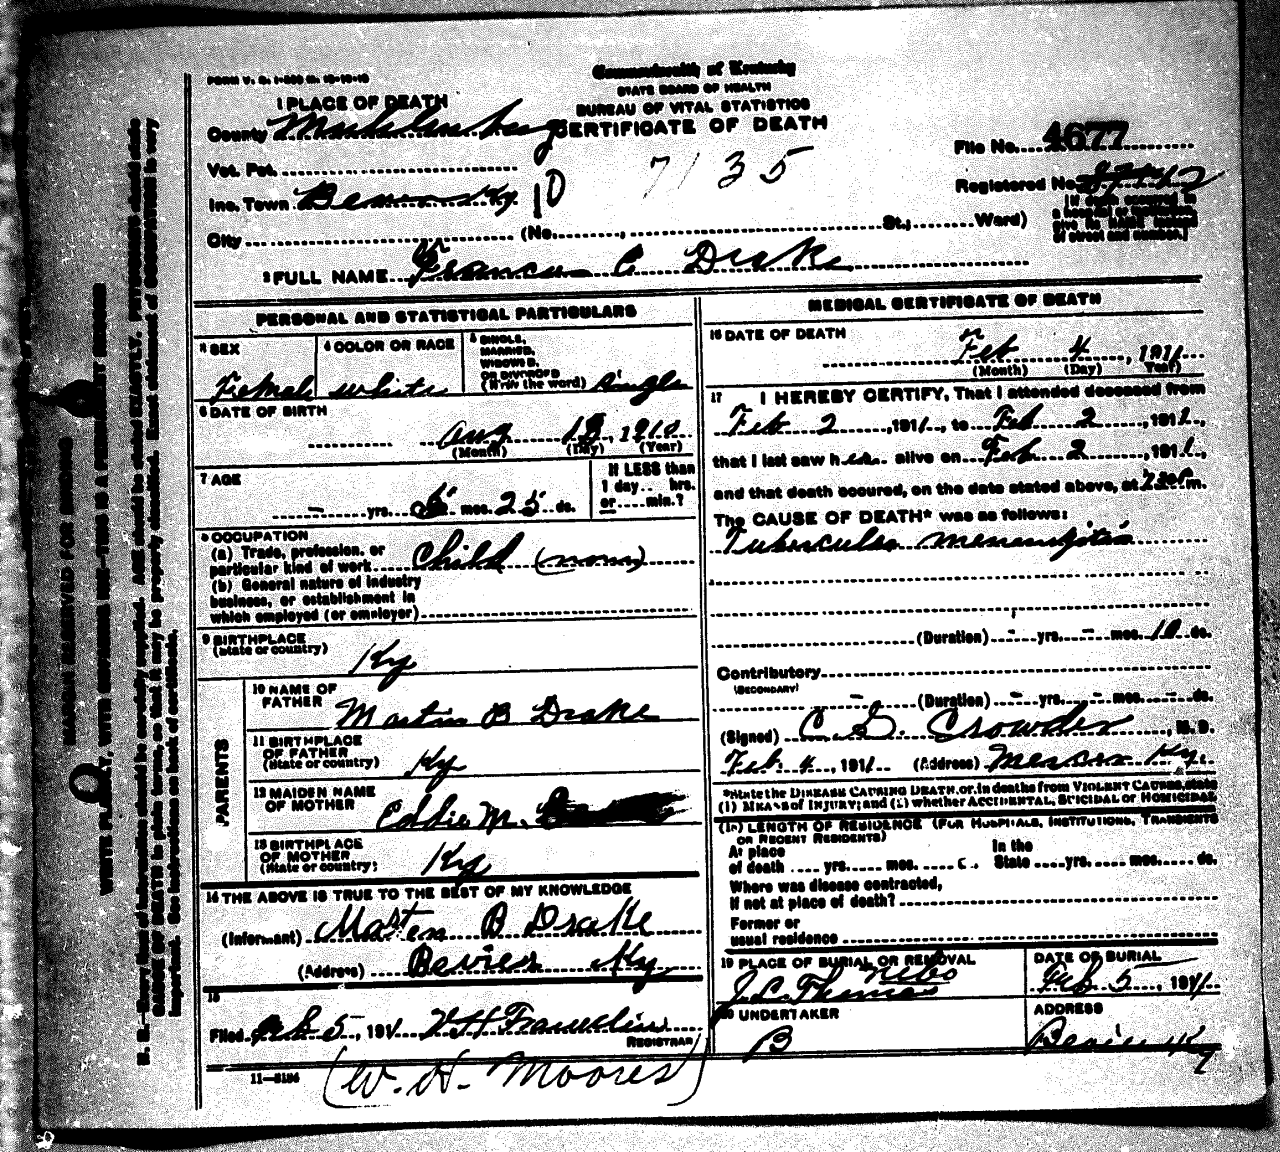 FORM V. S. 1-
Commonwealth of Kentucky
STATE BOARD OF HEALTH
BUREAU OF VITAL STATISTICS
CERTIFICATE OF DEATH
1 PLACE OF DEATH
County
Vot. Pct.
Inc. Town
City (No. , St.; Ward)
7135
File No. 4677
Registered No.
2 FULL NAME C Drake
PERSONAL AND STATISTICAL PARTICULARS
3 SEX
Female
4 COLOR OR RACE
white
5 SINGLE,
MARRIED,
WIDOWED,
OR DIVORCED
(Write the word) Single
6 DATE OF BIRTH
Aug , 1910
(Month) (Day) (Year)
7 AGE
- yrs. mos. 25 ds.
If LESS than
1 day.. hrs.
or.....min.?
8 OCCUPATION
(a) Trade, profession, or
particular kind of work Child
(b) General nature of industry
business, or establishment in
which employed (or employer)
9 BIRTHPLACE
(State or country) Ky
PARENTS
10 NAME OF
FATHER
Martin B Drake
11 BIRTHPLACE
OF FATHER
(State or country) Ky
12 MAIDEN NAME
OF MOTHER
Eddie M.
13 BIRTHPLACE
OF MOTHER
(State or country) Ky
14 THE ABOVE IS TRUE TO THE BEST OF MY KNOWLEDGE
(Informant) Martin B Drake
(Address) Bevier Ky
15
Filed Feb 5, 1911
REGISTRAR
11-
(W. H. Moores)
MEDICAL CERTIFICATE OF DEATH
16 DATE OF DEATH
Feb 4, 1911
(Month) (Day) (Year)
17 I HEREBY CERTIFY, That I attended deceased from
Feb 2, 1911, to Feb 2, 1911,
that I last saw her alive on Feb 2, 1911,
and that death occured, on the date stated above, at m.
The CAUSE OF DEATH* was as follows:
Tubercular meningitis
(Duration) - yrs. - mos. 10 ds.
Contributory
(SECONDARY)
- (Duration) - yrs. - mos. - ds.
(Signed) Crowder, M. D.
Feb. 4, 1911 (Address) Ky.
*State the DISEASE CAUSING DEATH, or, in deaths from VIOLENT CAUSES, state
(1) MEANS of INJURY; and (2) whether ACCIDENTAL, SUICIDAL or HOMICIDAL
LENGTH OF RESIDENCE (FOR HOSPITALS, INSTITUTIONS, TRANSIENTS
OR RECENT RESIDENTS)
At place In the
of death yrs. mos. State yrs. mos. ds.
Where was disease contracted,
if not at place of death?
Former or
usual residence
19 PLACE OF BURIAL OR REMOVAL
Nebo
DATE OF BURIAL
Feb 5, 1911
20 UNDERTAKER
B
ADDRESS
Bevier Ky
MARGIN RESERVED FOR BINDING
WRITE PLAINLY, WITH UNFADING INK—THIS IS A PERMANENT RECORD
N. B.—Every item of information should be carefully supplied. AGE should be stated EXACTLY. PHYSICIANS should state
CAUSE OF DEATH in plain terms, so that it may be properly classified. Exact statement of OCCUPATION is very
important. See instructions on back of certificate.